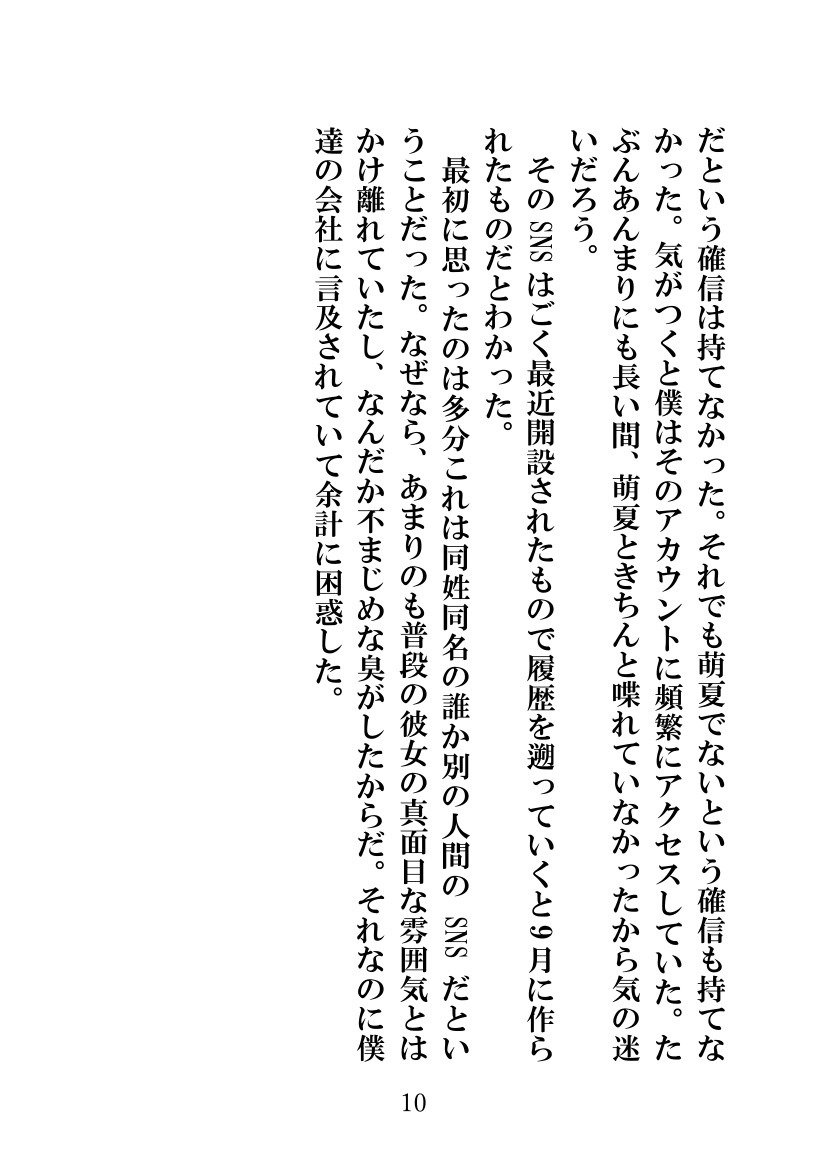 だという確信は持てなかった。それでも萌夏でないという確信も持てな
かった。気がつくと僕はそのアカウントに頻繁にアクセスしていた。た
ぶんあんまりにも長い間、萌夏ときちんと喋れていなかったから気の迷
いだろう。
　そのSNSはごく最近開設されたもので履歴を遡っていくと9月に作ら
れたものだとわかった。
　最初に思ったのは多分これは同姓同名の誰か別の人間の SNS だとい
うことだった。なぜなら、あまりのも普段の彼女の真面目な雰囲気とは
かけ離れていたし、なんだか不まじめな臭がしたからだ。それなのに僕
達の会社に言及されていて余計に困惑した。
10